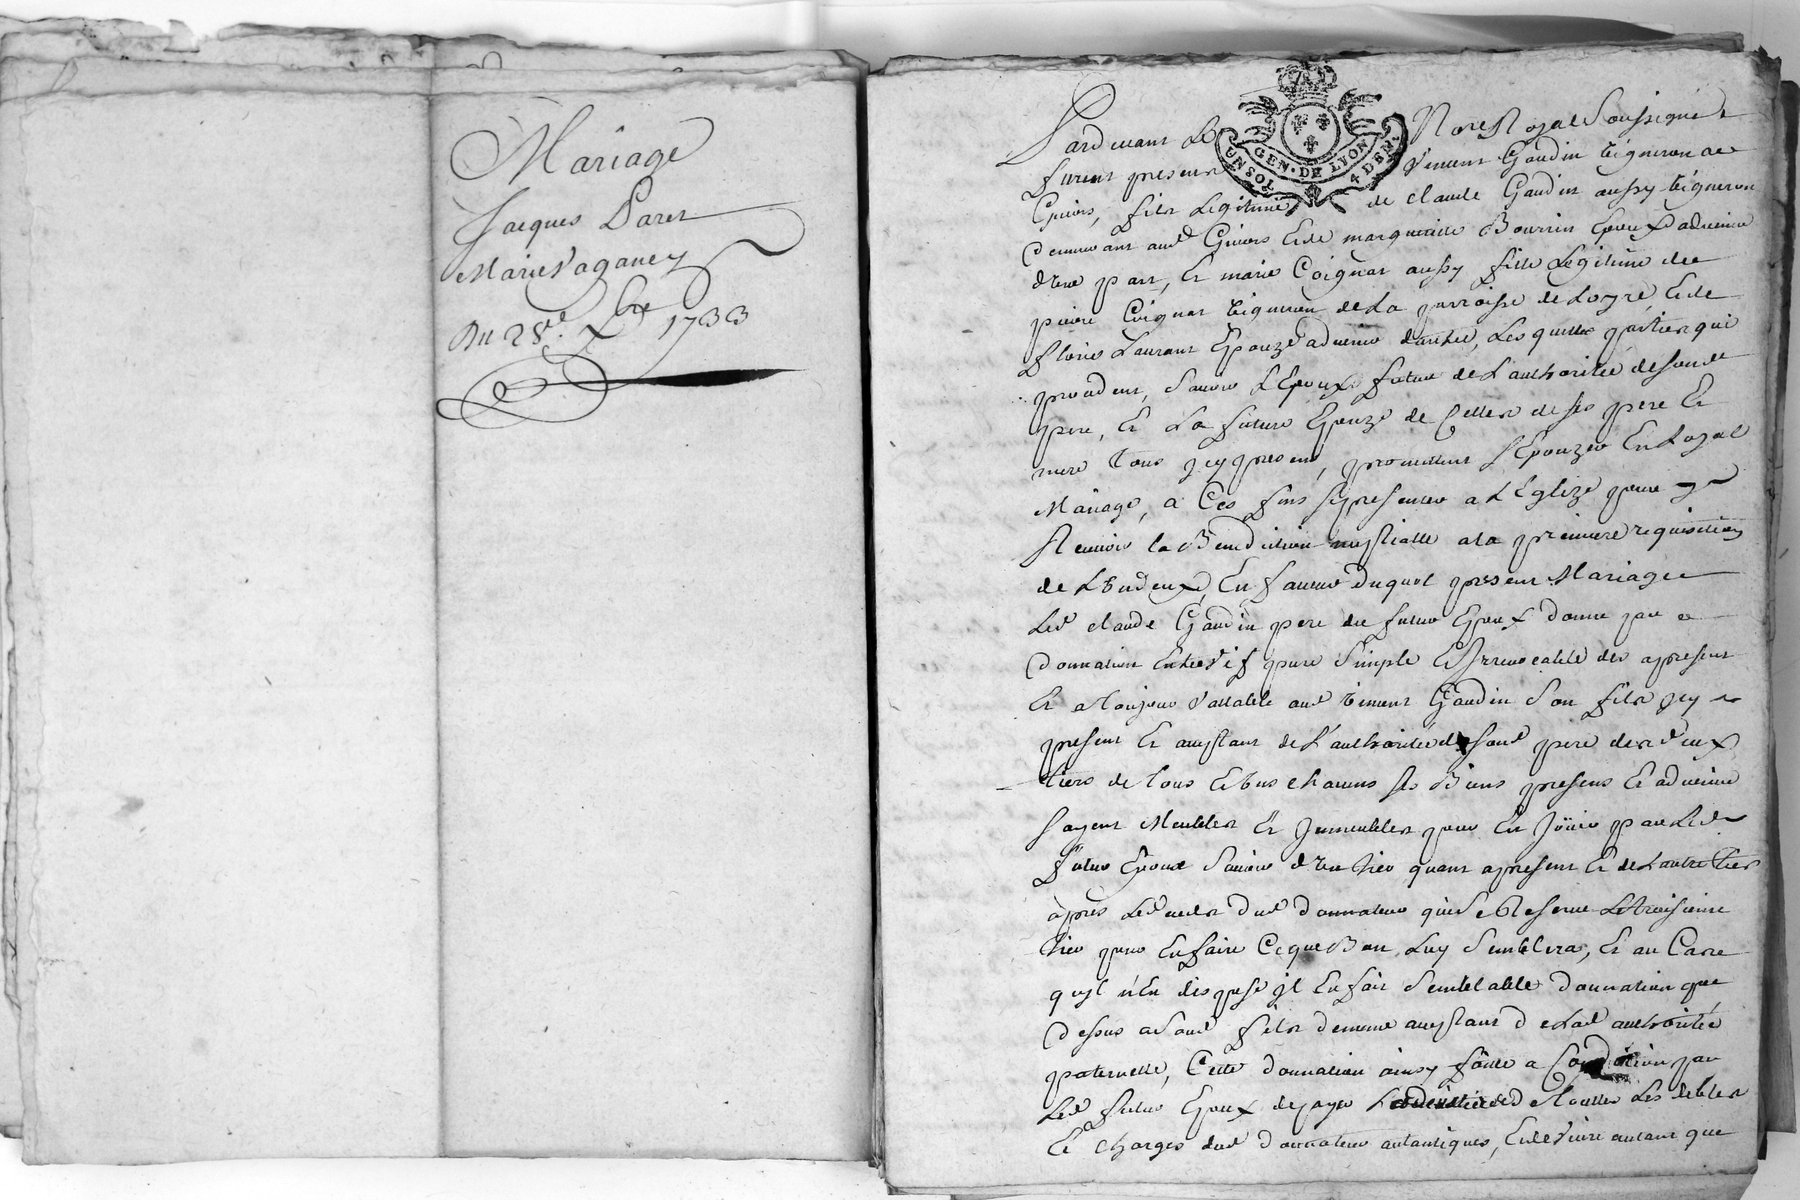 Mariage
Jacques Paret
Marie Vaganey
Du 28e. Xbre 1733
GEN. DE LYON
UN SOL 4 D.
Pardevant Le Nore Royal Soussigné
furent presents Vincent Gaudin vigneron de
Givors, fils Legitime de claude Gaudin aussy vigneron
demeurant aud Givors Et de margueritte Bourrin Epoux advenir
d'une part, Et marie Coignat aussy fille Legitime de
pierre Coignat vigneron de La parroisse de Loyre Et de
florie Laurant Epouze advenir dautre, Lesquelles parties qui
procedent, Scavoir L'Epoux futur de L'authorité de sond
pere, Et La future Epouze de Celles de ses pere Et
mere tous jcy presens, promettent S'Epouzer En Loyal
Mariage, a Ces fins se presenter a L'Eglize pour y
Recevoir la Benediction nuptialle a la premiere requisition
de L'un deux, En faveur duquel present Mariage
Led claude Gaudin pere du futur Epoux donne par
donnation Entre vif pure Simple Et Irrevocable des apresent
Et a toujour vallable aud vincent Gaudin Son fils jcy
present Et acceptant de L'authorité de sond pere des deux
tiers de tous Et uns chacuns ses Biens presens Et advenir
soyent Meubles Et Immeubles pour En joüir par Led
futur Epoux Scavoir d'un tier quant apresent Et de Lautre tier
apres Le deces dud donnateur qui Se Reserve Le troisieme
tier pour En faire Ce que Bon Luy Semblera, Et au Cas
quyl n'En dispose jl En fait Semblable donnation que
dessus a Sond fils de meme acceptant de Lad authorité
paternelle, Cette donnation ainsy faitte a Condition par
Led futur Epoux de payer touttes Les debtes
Et charges dud donnateur autantiques, Et de vivre autant que